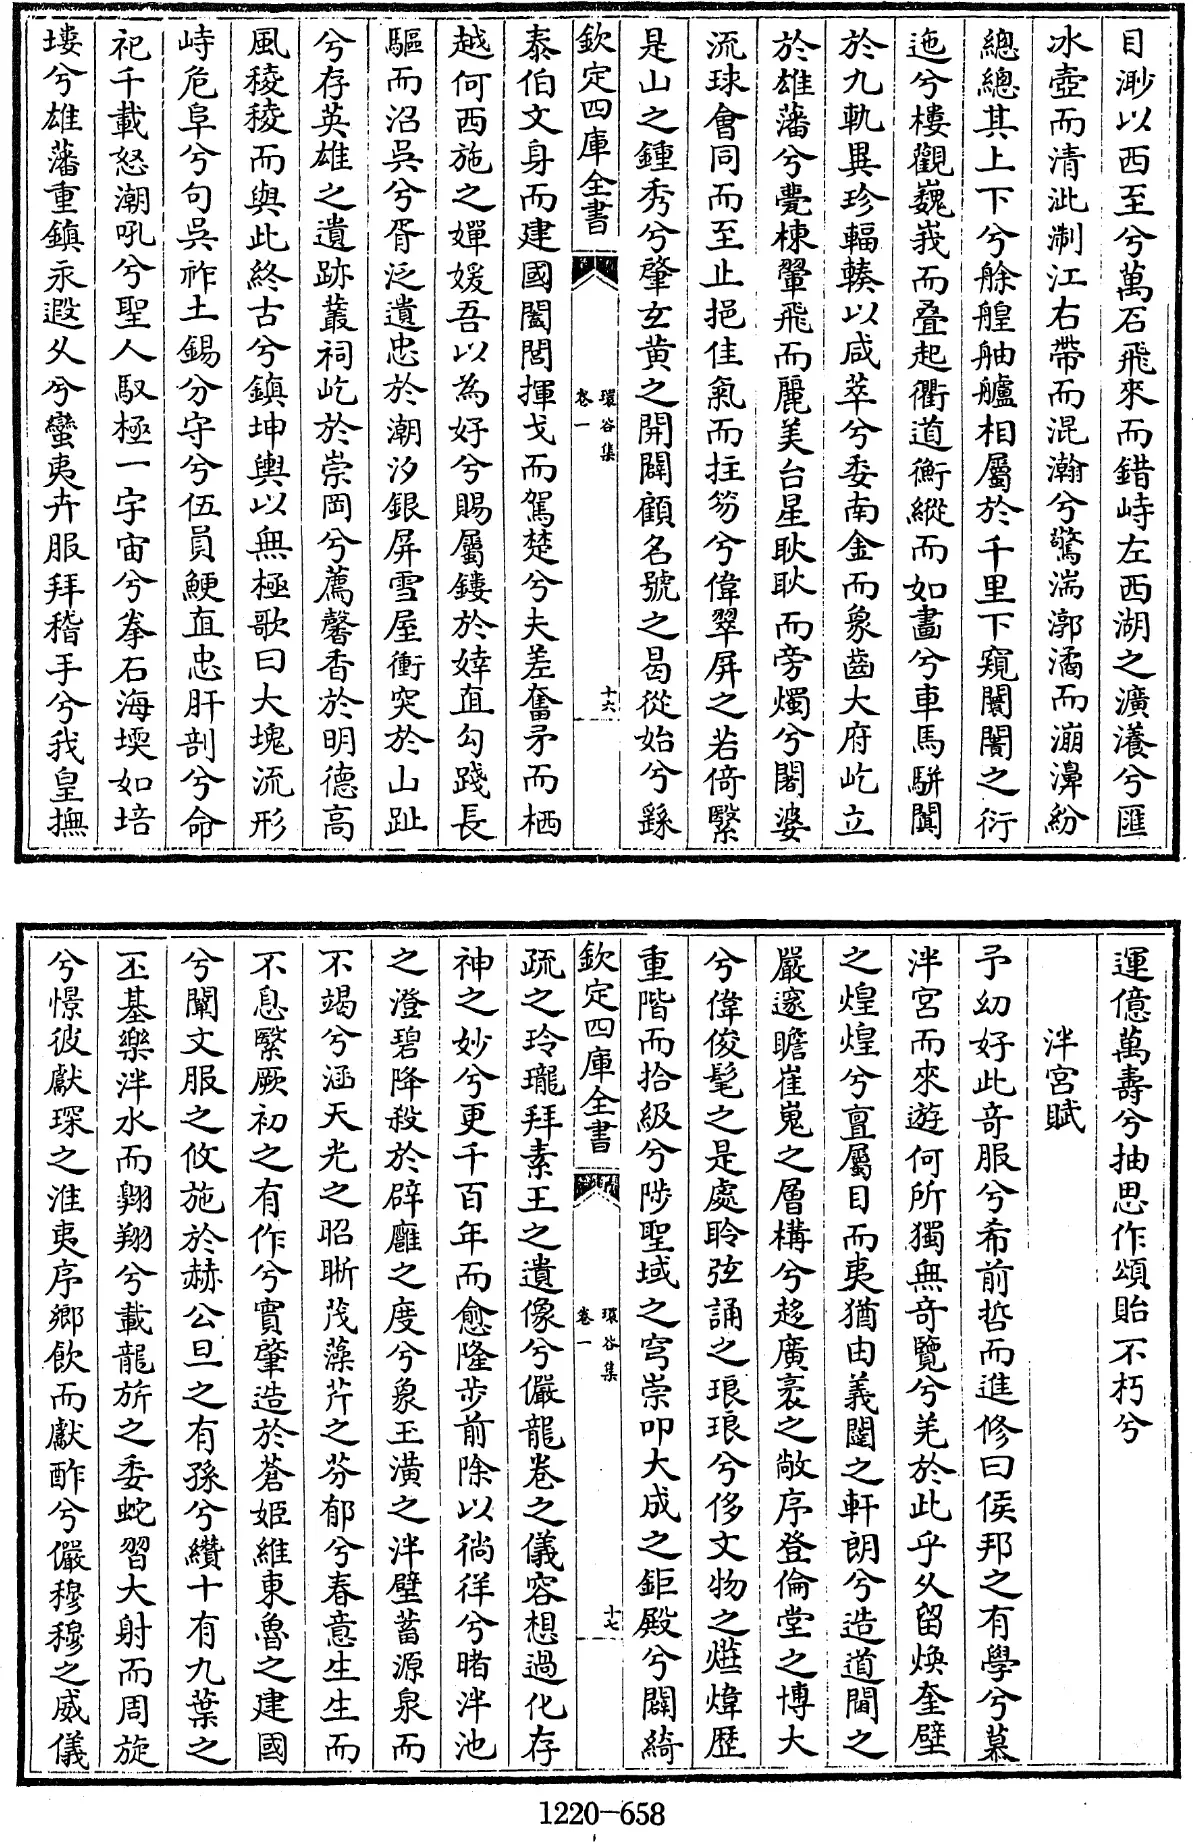 目渺以西至兮萬石飛來而錯峙左西湖之瀇瀁兮匯
氷壺而清泚淛江右帶而混瀚兮驚湍漷潏而漰濞紛
總總其上下兮艅艎舳艫相屬於千里下窺闤闠之衍
迤兮樓觀巍峩而疊起衢道衡縱而如畫兮車馬駢闐
於九軌異珍輻輳以咸萃兮委南金而象齒大府屹立
於雄藩兮甍棟翬飛而麗美台星耿耿而旁燭兮闍婆
流球會同而至止挹佳氣而拄笏兮偉翠屏之若倚繄
是山之鍾秀兮肇玄黄之開闢顧名號之曷從始兮繇
欽定四庫全書
環谷集
卷一
十六
泰伯文身而建國闔閭揮戈而駕楚兮夫差奮矛而栖
越何西施之嬋媛吾以為好兮賜屬鏤於婞直勾踐長
驅而沼吳兮胥泛遺忠於潮汐銀屏雪屋衝突於山趾
兮存英雄之遺跡叢祠屹於崇岡兮薦馨香於明德高
風稜稜而與此終古兮鎮坤輿以無極歌曰大塊流形
峙危阜兮句吳祚土錫分守兮伍員鯁直忠肝剖兮命
祀千載怒潮吼兮聖人馭極一宇宙兮拳石海堧如培
塿兮雄藩重鎮永遐乆兮蠻夷卉服拜稽手兮我皇撫
運億萬壽兮抽思作頌貽不朽兮
泮宮賦
予幼好此奇服兮希前哲而進修曰侯邦之有學兮慕
泮宮而來遊何所獨無奇覽兮羌於此乎乆留煥奎壁
之煌煌兮亶屬目而夷猶由義闥之軒朗兮造道閫之
嚴邃瞻崔嵬之層構兮趍廣袤之敞序登倫堂之博大
兮偉俊髦之是處聆弦誦之琅琅兮侈文物之煒煒歷
重階而拾級兮陟聖域之穹崇叩大成之鉅殿兮闢綺
欽定四庫全書
環谷集
卷一
十七
疏之玲瓏拜素王之遺像兮儼龍卷之儀容想過化存
神之妙兮更千百年而愈隆步前除以徜徉兮睹泮池
之澄碧降殺於辟廱之度兮象玉潢之泮壁蓄源泉而
不竭兮涵天光之昭晣茂藻芹之芬郁兮春意生生而
不息繄厥初之有作兮實肇造於蒼姬維東魯之建國
兮闡文服之攸施於赫公旦之有孫兮纘十有九葉之
丕基樂泮水而翺翔兮載龍旂之委蛇習大射而周旋
兮憬彼獻琛之淮夷序鄉飲而獻酢兮儼穆穆之威儀
1220—658